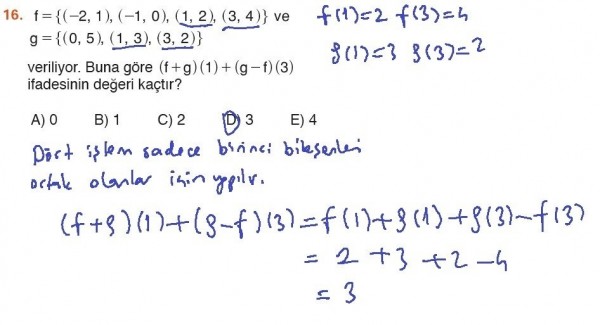 16. f = {(−2, 1), (−1, 0), (1, 2), (3, 4)} ve
g = {(0, 5), (1, 3), (3, 2)}
f(1)=2 f(3)=4
g(1)=3 g(3)=2
veriliyor. Buna göre (f+g)(1)+(g−f)(3)
ifadesinin değeri kaçtır?
A) 0 B) 1 C) 2 D) 3 E) 4
Dört işlem sadece birinci bileşenleri
ortak olanlar için yapılır.
(f+g)(1)+(g−f)(3)=f(1)+g(1)+g(3)−f(3)
= 2 +3 +2 −4
= 3